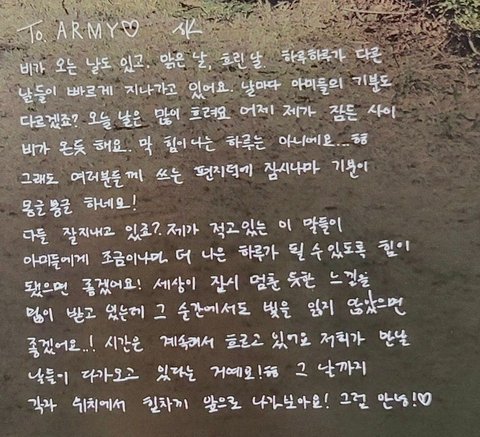 To. ARMY♡ JK
비가 오는 날도 있고. 맑은 날, 흐린 날 하루하루가 다른
날들이 빠르게 지나가고 있어요. 날마다 아미들의 기분도
다르겠죠? 오늘 날은 많이 흐려요 어제 제가 잠든 사이
비가 온듯 해요.. 막 힘이 나는 하루는 아니에요...ㅎㅎ
그래도 여러분들께 쓰는 편지덕에 잠시나마 기분이
몽글몽글 하네요!
다들 잘지내고 있죠? 제가 적고 있는 이 말들이
아미들에게 조금이나마 더 나은 하루가 될 수 있도록 힘이
됐으면 좋겠어요! 세상이 잠시 멈춘 듯한 느낌을
많이 받고 있는데 그 순간에서도 빛을 잃지 않았으면
좋겠어요..! 시간은 계속해서 흐르고 있어요 저희가 만날
날들이 다가오고 있다는 거예요!ㅎㅎ 그 날까지
각자 위치에서 힘차게 앞으로 나가보아요! 그럼 안녕!♡